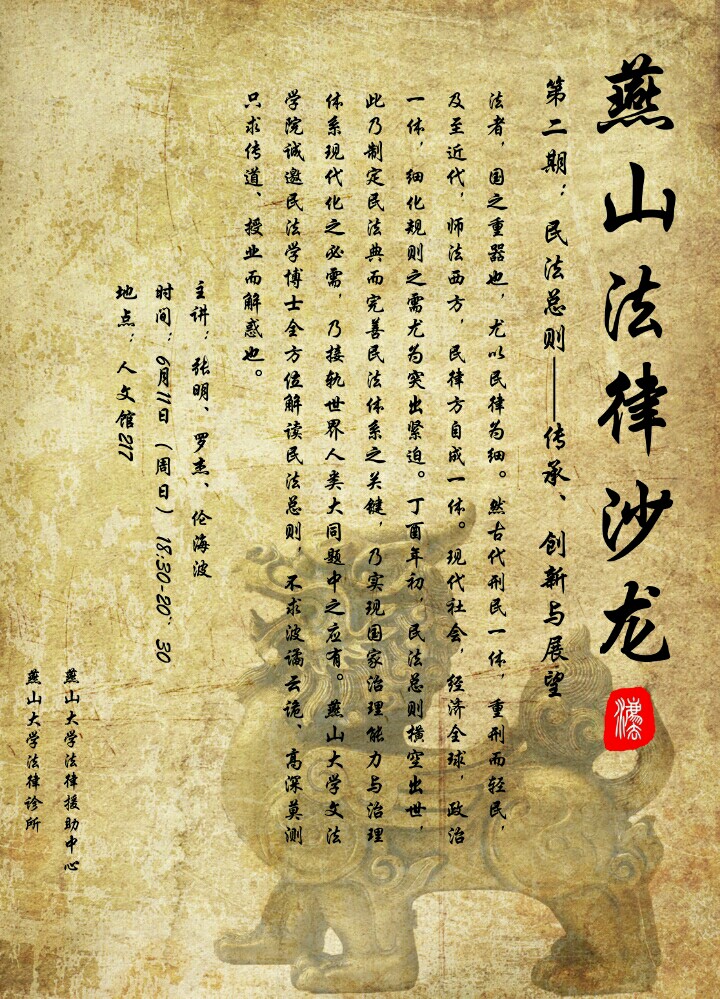 燕山法律沙龙
第二期：民法总则——传承、创新与展望
法者，国之重器也，尤以民律为细。然古代刑民一体，重刑而轻民，
及至近代，师法西方，民律方自成一体。现代社会，经济全球，政治
一体，细化规则之需尤为突出紧迫。丁酉年初，民法总则横空出世，
此乃制定民法典而完善民法体系之关键，乃实现国家治理能力与治理
体系现代化之必需，乃接轨世界人类大同题中之应有。燕山大学文法
学院诚邀民法学博士全方位解读民法总则，不求波谲云诡、高深莫测
只求传道、授业而解惑也。
主讲：张明、罗杰、伦海波
时间：6月11日（周日）18:30-20：30
地点：人文馆217
燕山大学法律援助中心
燕山大学法律诊所